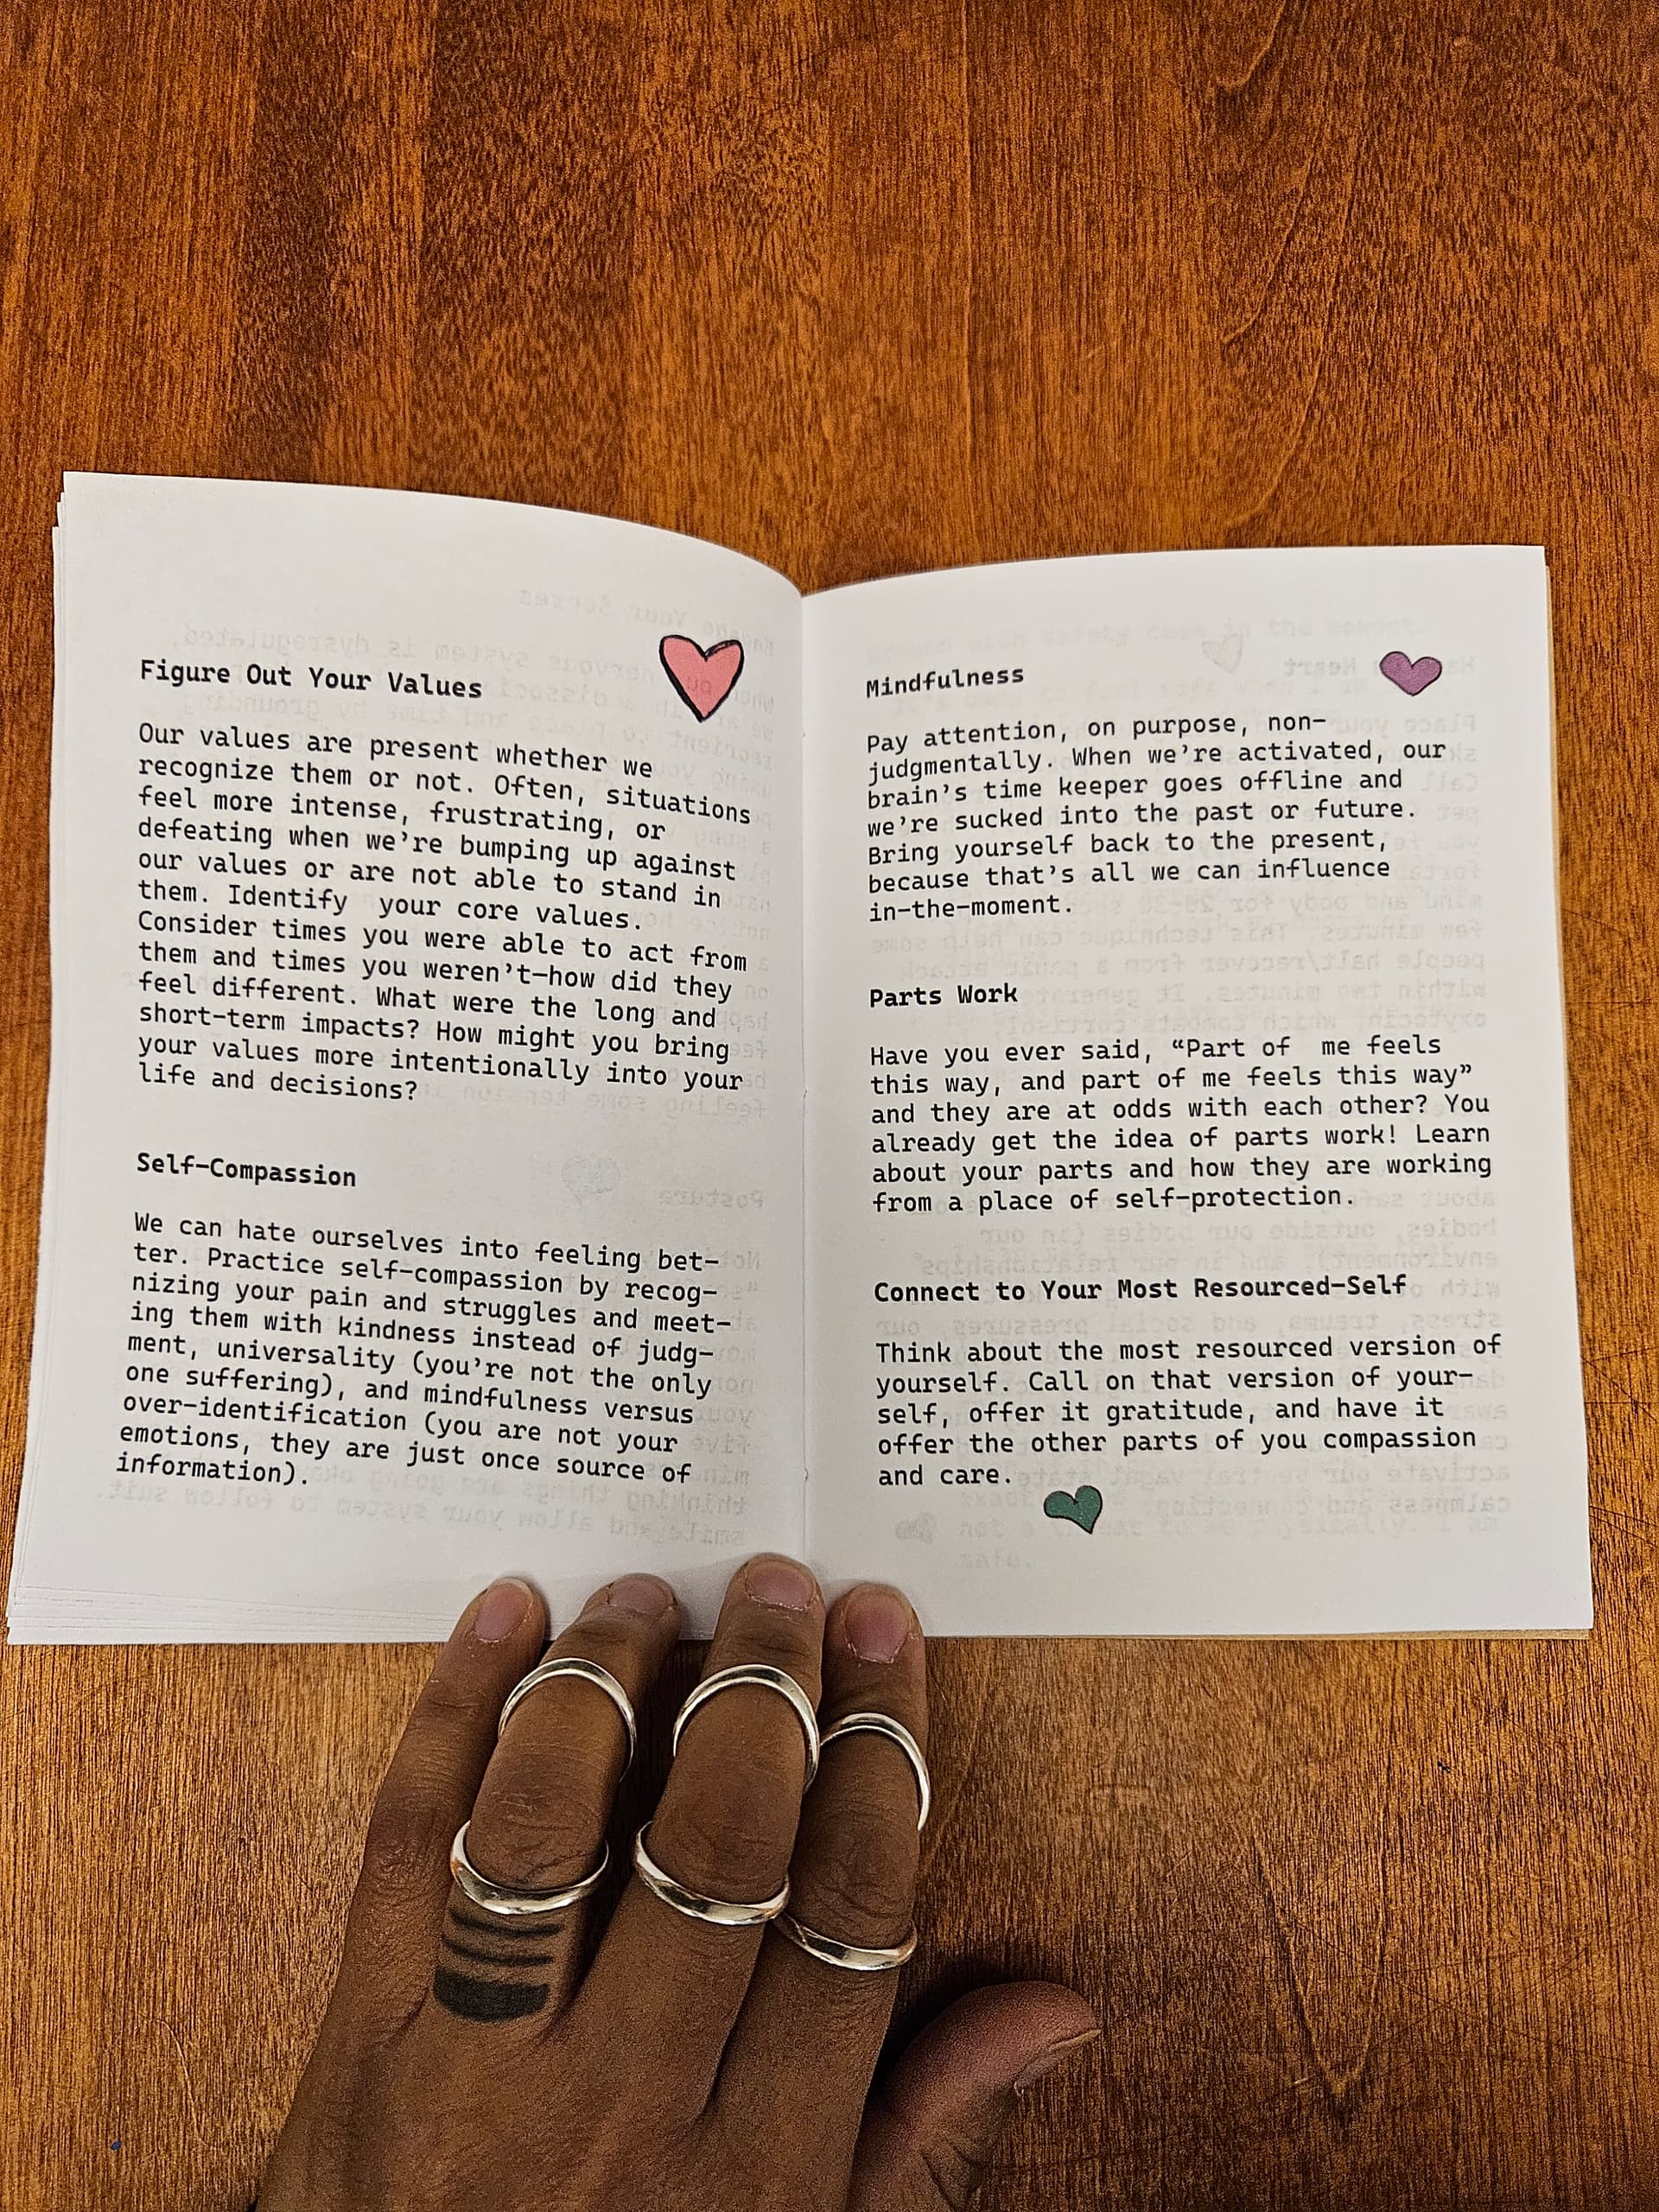 Figure Out Your Values
Our values are present whether we
recognize them or not. Often, situations
feel more intense, frustrating, or
defeating when we're bumping up against
our values or are not able to stand in
them. Identify  your core values.
Consider times you were able to act from
them and times you weren't—how did they
feel different. What were the long and
short-term impacts? How might you bring
your values more intentionally into your
life and decisions?
Self-Compassion
We can hate ourselves into feeling bet-
ter. Practice self-compassion by recog-
nizing your pain and struggles and meet-
ing them with kindness instead of judg-
ment, universality (you're not the only
one suffering), and mindfulness versus
over-identification (you are not your
emotions, they are just once source of
information).
Mindfulness
Pay attention, on purpose, non-
judgmentally. When we're activated, our
brain's time keeper goes offline and
we're sucked into the past or future.
Bring yourself back to the present,
because that's all we can influence
in-the-moment.
Parts Work
Have you ever said, “Part of  me feels
this way, and part of me feels this way”
and they are at odds with each other? You
already get the idea of parts work! Learn
about your parts and how they are working
from a place of self-protection.
Connect to Your Most Resourced-Self
Think about the most resourced version of
yourself. Call on that version of your-
self, offer it gratitude, and have it
offer the other parts of you compassion
and care.